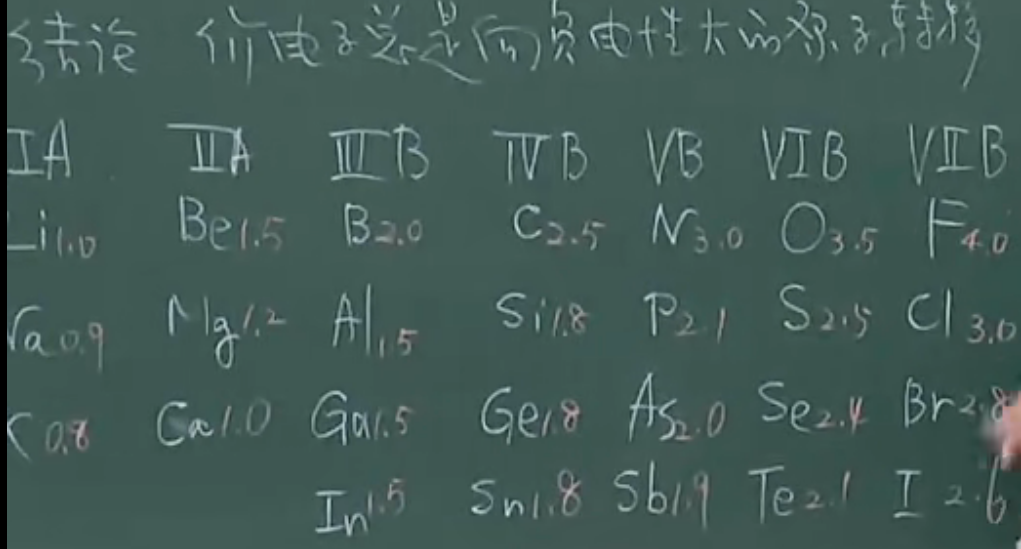 结论 价电子总是向负电性大的离子转移
IA IIA IIIB IVB VB VIB VIIB
Li 1.0 Be 1.5 B 2.0 C 2.5 N 3.0 O 3.5 F 4.0
Na 0.9 Mg 1.2 Al 1.5 Si 1.8 P 2.1 S 2.5 Cl 3.0
K 0.8 Ca 1.0 Ga 1.5 Ge 1.8 As 2.0 Se 2.4 Br 2.8
In 1.5 Sn 1.8 Sb 1.9 Te 2.1 I 2.6